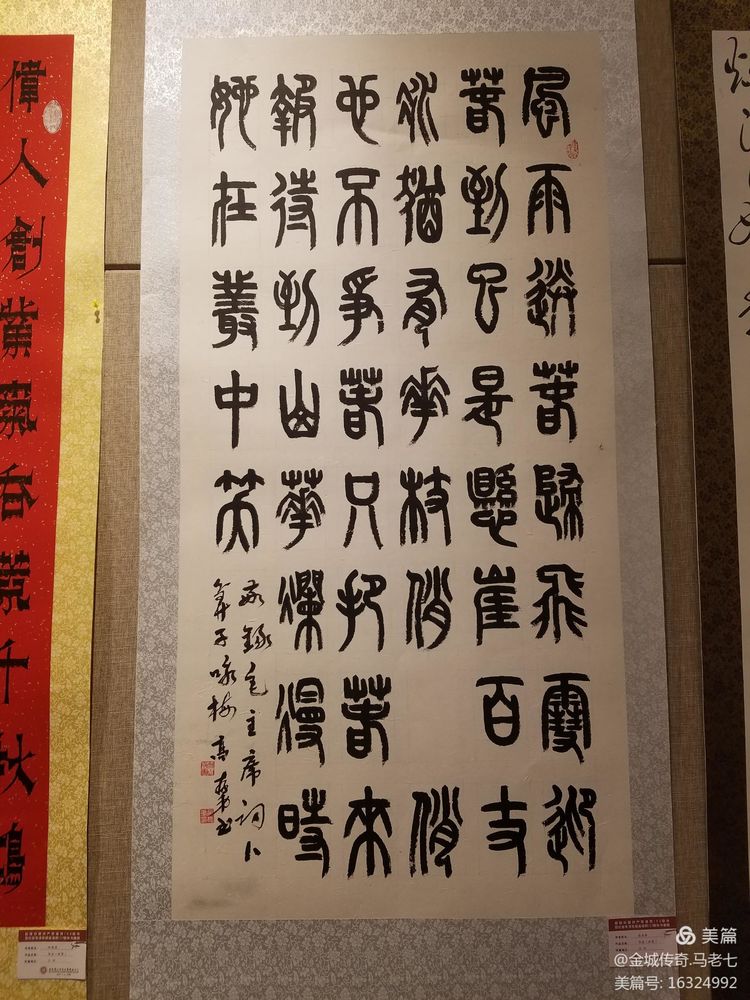 風雨送春歸飛雪迎
春到已是懸崖百丈
冰猶有花枝俏 俏
也不爭春只把春來
報待到山花爛漫時
她在叢中笑
敬錄毛主席詞卜
算子咏梅 高书
偉人創業氣吞荒千秋鴻
美篇
@金城传奇.马老七
美篇号: 16324992